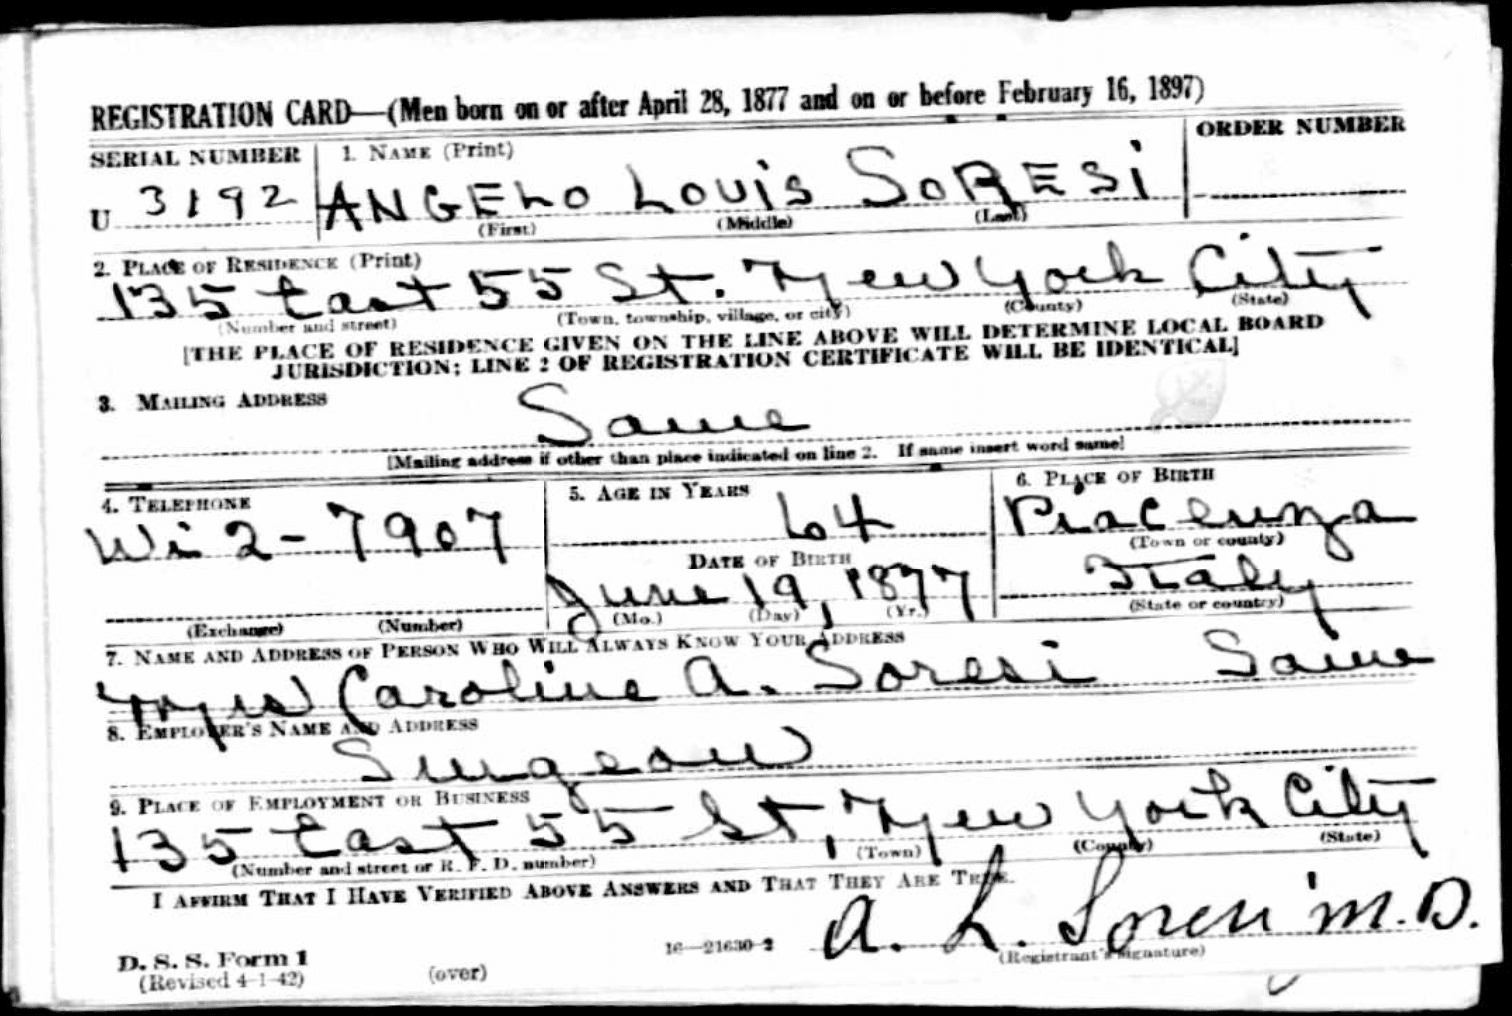 REGISTRATION CARD—(Men born on or after April 28, 1877 and on or before February 16, 1897)
SERIAL NUMBER 1. NAME (Print) ORDER NUMBER
U 3192 ANGELO LOUIS SORESI
(First) (Middle) (Last)
2. PLACE OF RESIDENCE (Print)
135 East 55 St. New York City
(Number and street) (Town, township, village, or city) (County) (State)
[THE PLACE OF RESIDENCE GIVEN ON THE LINE ABOVE WILL DETERMINE LOCAL BOARD
JURISDICTION; LINE 2 OF REGISTRATION CERTIFICATE WILL BE IDENTICAL]
3. MAILING ADDRESS
Same
[Mailing address if other than place indicated on line 2. If same insert word same]
4. TELEPHONE 5. AGE IN YEARS 6. PLACE OF BIRTH
Wi 2-7907 64 Piacenza
(Town or county)
DATE OF BIRTH
June 19, 1877 Italy
(Exchange) (Number) (Mo.) (Day) (Yr.) (State or country)
7. NAME AND ADDRESS OF PERSON WHO WILL ALWAYS KNOW YOUR ADDRESS
Mrs Caroline A. Soresi Same
8. EMPLOYER'S NAME AND ADDRESS
Surgeon
9. PLACE OF EMPLOYMENT OR BUSINESS
135 East 55 St, New York City
(Number and street or R. F. D. number) (Town) (County) (State)
I AFFIRM THAT I HAVE VERIFIED ABOVE ANSWERS AND THAT THEY ARE TRUE.
A. L. Soresi M.D.
D. S. S. Form 1 16—21630-2 (Registrant's signature)
(Revised 4-1-42) (over)